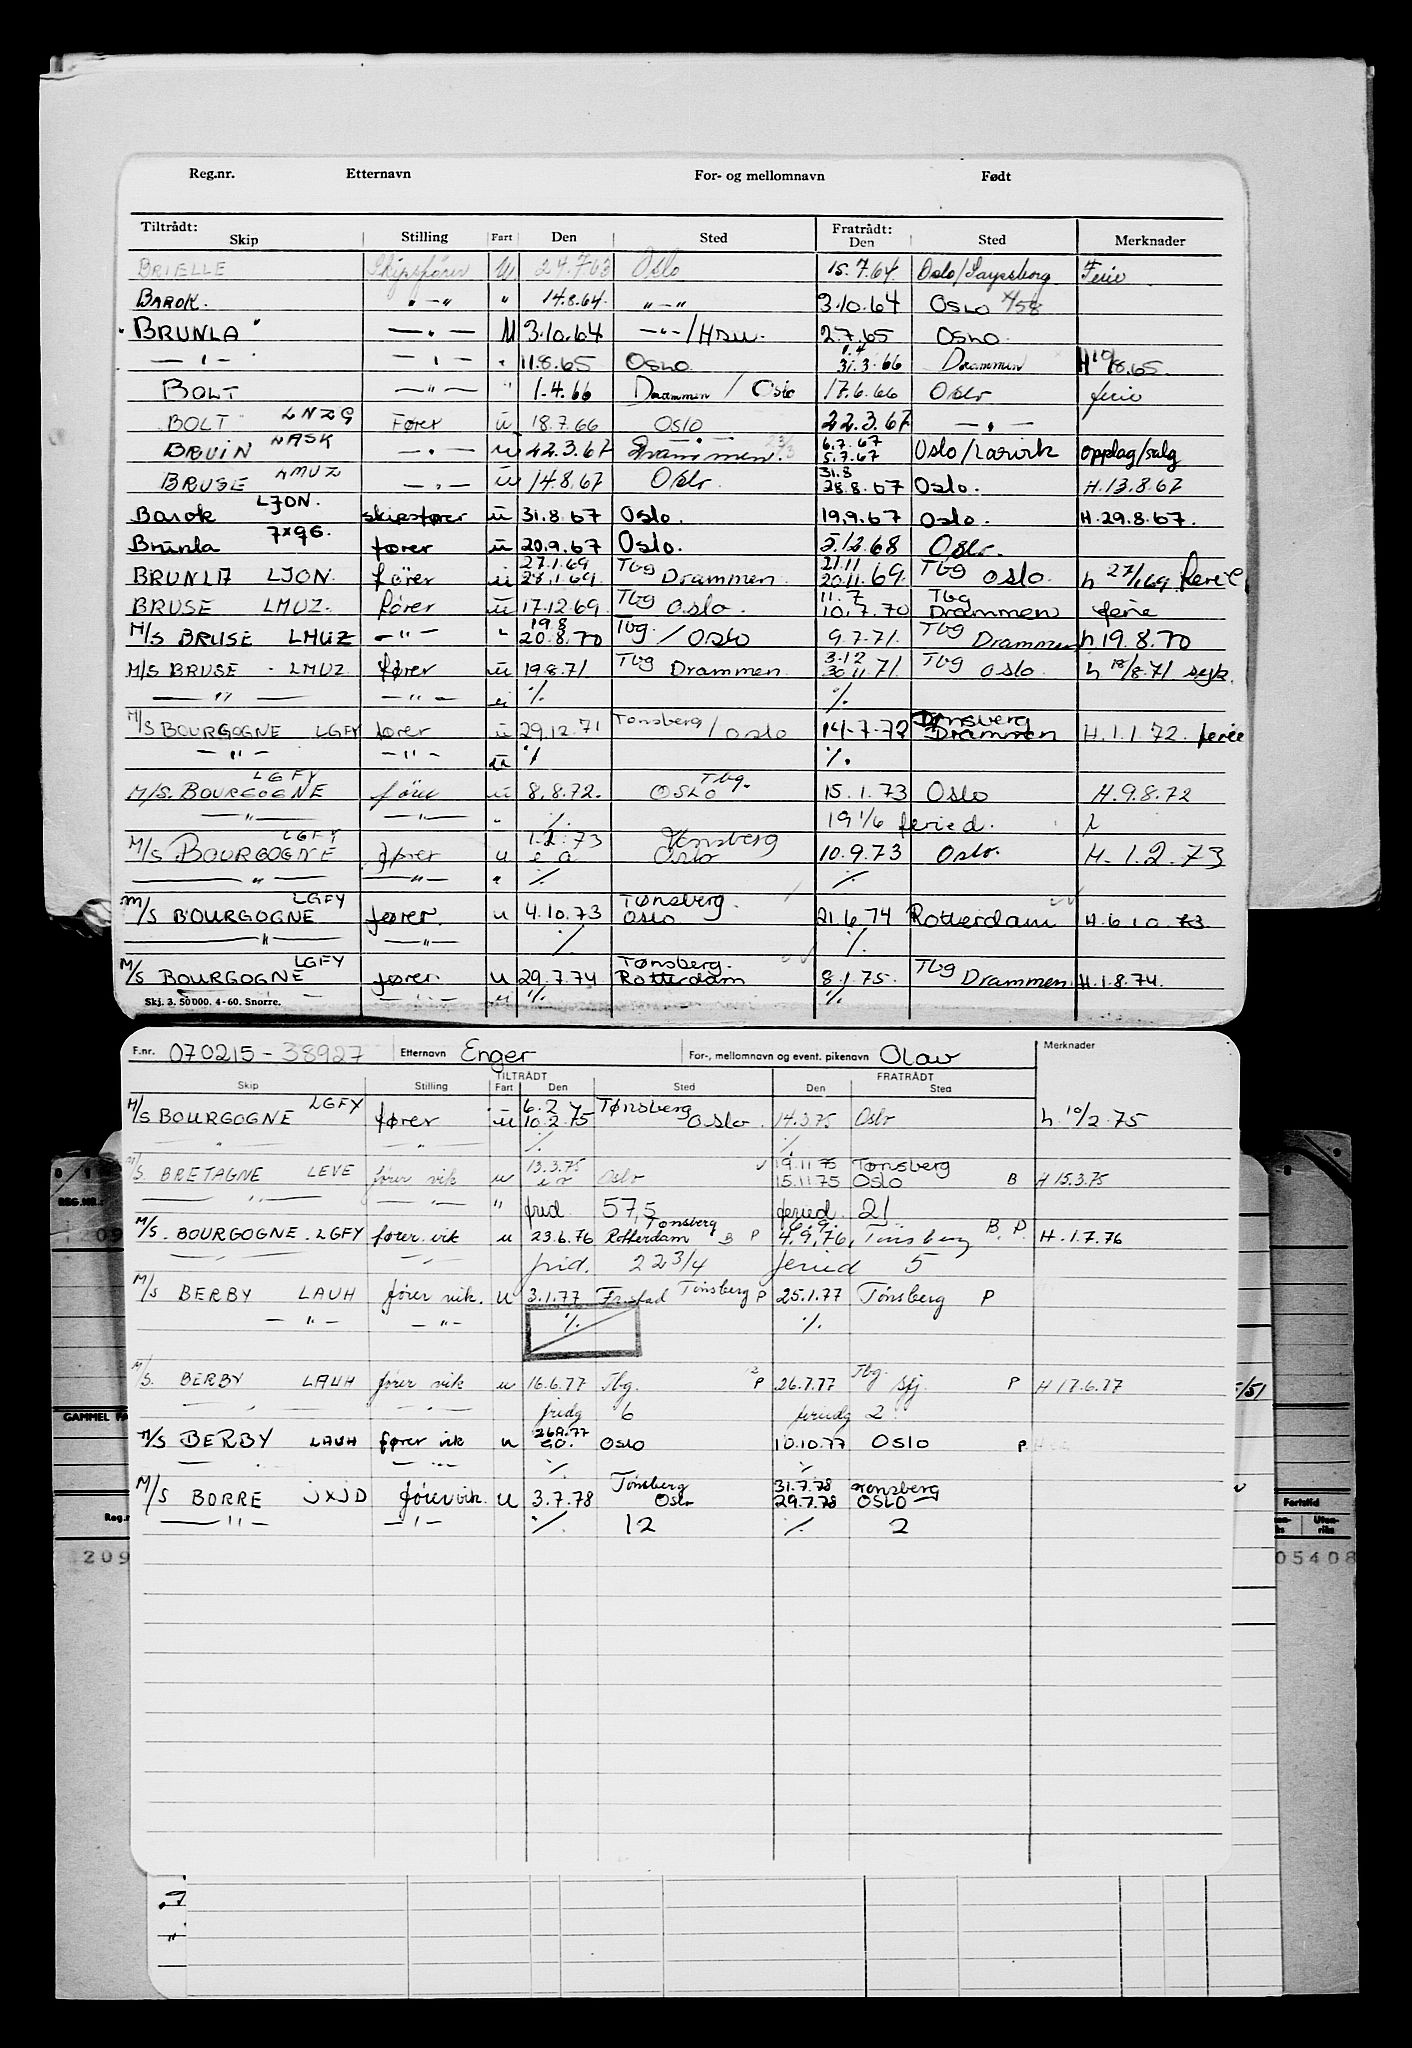 Reg.nr. Etternavn For- og mellomnavn Født
Tiltrådt: Skip Stilling Fart Den Sted Fratrådt: Den Sted Merknader
BRIELLE Skipsfører u 24.7.63 Oslo 15.7.64 Oslo/ Ferie
BAROK. " — " " 14.8.64 " — " 3.10.64 OSLO
"BRUNLA" — " — U 3.10.64 — " — / 2.7.65 OSLO.
— " — — " — " 11.8.65 OSLO. 31.3.66 Drammen H 10/8.65.
BOLT — " — " 1.4.66 Drammen / Oslo 17.6.66 Oslo ferie
BOLT LNZG Fører u 18.7.66 OSLO 22.3.67 — " —
BRUIN LASK — " — u 22.3.67 Drammen. 6.7.67 5.7.67 Oslo/Larvik opplag/salg
BRUSE LMUZ — " — u 14.8.67 Oslo. 31.8 28.8.67 Oslo. H.13.8.67
Barok LJON. skipsfører u 31.8.67 Oslo. 19.9.67 Oslo. H.29.8.67.
Brunla fører u 20.9.67 Oslo. 5.12.68 Oslo.
BRUNLA LJON. fører u 27.1.69 28.1.69. Tbg Drammen. 21.11 20.11.69. Tbg Oslo. h 27/1.69 ferie
BRUSE LMUZ. fører u 17.12.69. Tbg Oslo. 11.7 10.7.70 Tbg Drammen ferie
M/S BRUSE LMUZ — " — " 19.8 20.8.70 Tbg. / Oslo 9.7.71. Tbg Drammen h 19.8.70
M/S BRUSE - LMUZ fører u 19.8.71 Tbg Drammen. 3.12 30.11.71. Tbg Oslo. h 18/8.71 syk.
— " — — " — u % %
M/S BOURGOGNE LGFY fører u 29.12.71 Tønsberg / Oslo 14.7.72 Tønsberg Drammen H.1.1.72. ferie
— " — — " — u % %.
M/S. BOURGOGNE LGFY fører u 8.8.72. OSLO Tbg. 15.1.73 Oslo H.9.8.72
— " — — " — " %. 19 1/6 feried.
M/S BOURGOGNE LGFY fører u 1.2.73 Tønsberg Oslo 10.9.73 Oslo. H.1.2.73
— " — — " — " % %
M/S BOURGOGNE LGFY fører. u 4.10.73 Tønsberg. Oslo 21.6.74 Rotterdam H.6.10.73.
— " — — " — % %.
M/S BOURGOGNE LGFY fører. u 29.7.74 Tønsberg. Rotterdam 8.1.75. Tbg Drammen. H.1.8.74.
Skj. 3. 50 000. 4-60. Snorre. — " — " %. %
F.nr. 070215-38927 Etternavn Enger For-, mellomnavn og event. pikenavn Olav Merknader
TILTRÅDT FRATRÅDT
Skip Stilling Fart Den Sted Den Sted
M/S BOURGOGNE LGFY fører u 6.2 10.2.75 Tønsberg Oslo. 14.3.75 Oslo h. 10/2.75
" — " — %. %.
M/S. BRETAGNE LEVE fører vik u 13.3.75 Oslo 19.11.75 15.11.75 Tønsberg OSLO B H 15.3.75
— " — — " — " frid 57,5 feried. 21
M/S. BOURGOGNE. LGFY fører. vik u 23.6.76 Rotterdam Tønsberg B P 4.9.76. Tønsberg B. P. H.1.7.76
— " — — " — frid. 22 3/4 feried 5
M/S BERBY LAUH fører vik. u 3.1.77 Tønsberg P 25.1.77 Tønsberg P
— " — — " — %. %.
M/S. BERBY LAUH fører vik u 16.6.77 Tbg. P 26.7.77 Tbg. Sfj. P H 17.6.77
" — " — fridg 6 feriedg 2
M/S BERBY LAUH fører vik u 26.9.77 OSLO 10.10.77 OSLO P.
— " — — " — % %
M/S BORRE JXJD fører vik. u 3.7.78 Tønsberg Oslo 31.7.78 29.7.78 Tønsberg OSLO
— " — — " — %. 12 %. 2
REG.NR.:
GAMMEL
Reg.n
209
Fartstid
Uten-riks
05408